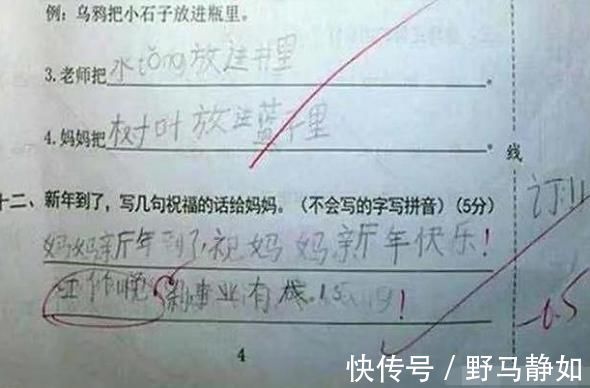 例：乌鸦把小石子放进瓶里。
3.老师把水tōng放进井里。
4.妈妈把树叶放进蓝子里。
十二、新年到了，写几句祝福的话给妈妈。（不会写的字写拼音）（5分）
妈妈新年到了，祝妈妈新年快乐！
工作 事业有成！
线
订
-0.5
4
快传号 / 野马静如